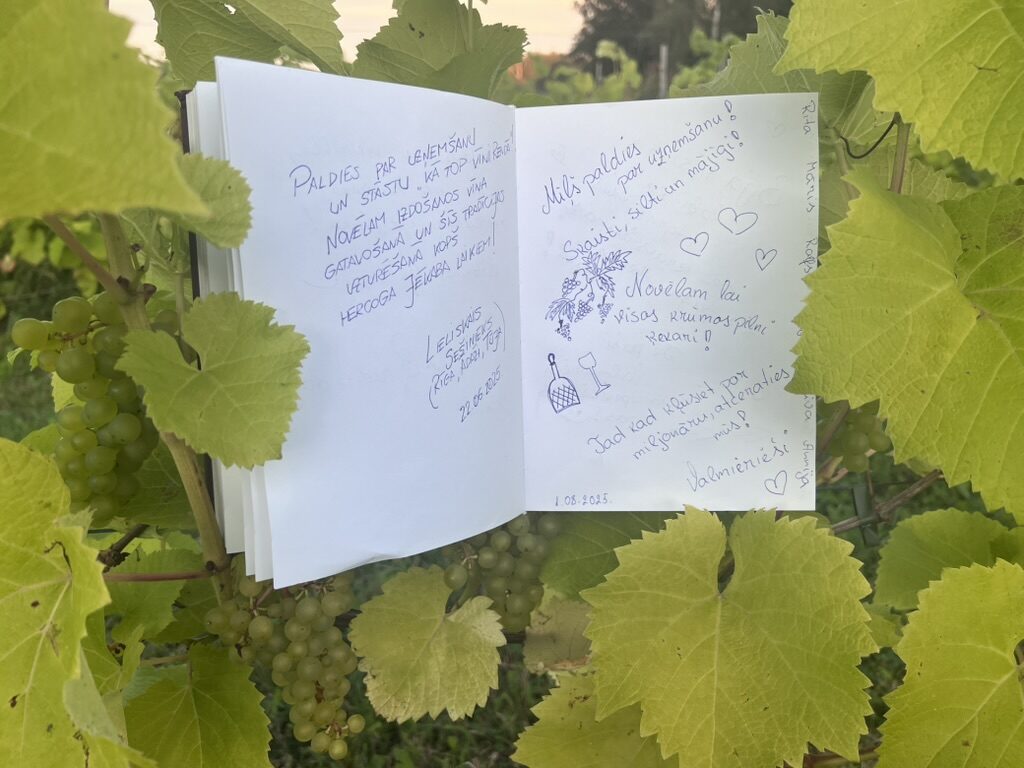 PALDIES PAR UZŅEMŠANU
UN STĀSTU "KĀ TOP VĪNI RENDĀ"!
NOVĒLAM IZDOŠANOS VĪNA
GATAVOŠANĀ UN ŠĪS TRADĪCIJAS
UZTURĒŠANĀ KOPŠ
HERCOGA JĒKABA LAIKIEM!
LIELISKAIS
SEŠINIEKS
(RĪGA, ĀDAŽI,
22.06.2025.
Mīļš paldies
par uzņemšanu!
Skaisti, silti un mājīgi!
Novēlam lai
visos krūmos pilni
ķekari!
Tad kad kļūsiet par
miljonāru, atceraties
mūs!
Valmierieši
1.08.2025.
Rita Māris